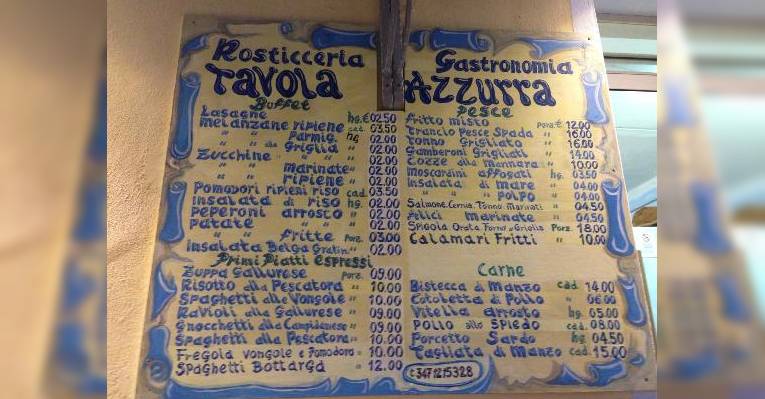 Rosticceria
TAVOLA
Buffet
Lasagne hg. € 02.50
melanzane ripiene cad. 03.50
" Parmig. hg 02.00
" alla Griglia " 02.00
Zucchine " " " 02.00
" marinate " 02.00
" ripiene " 02.00
Pomodori ripieni riso cad. 03.50
insalata di riso hg. 02.00
peperoni arrosto " 02.00
patate " " 02.00
" fritte Porz. 03.00
insalata Belga Gratin " 02.00
Primi Piatti espressi
Zuppa Gallurese porz. 09.00
Risotto alla Pescatora " 10.00
Spaghetti alle Vongole " 10.00
Ravioli alla Gallurese " 09.00
Gnocchetti alla Campidanese " 09.00
Spaghetti alla Pescatora " 10.00
Fregola vongole e Pomodoro " 10.00
Spaghetti Bottarga " 12.00
Gastronomia
AZZURRA
Pesce
Fritto misto Porz € 12.00
Trancio Pesce Spada " 16.00
Tonno Grigliato " 16.00
Gamberoni Grigliati " 14.00
Cozze alla Marinara " 10.00
Moscardini affogati hg. 03.50
Insalata di mare " 04.00
" " Polpo " 04.00
Salmone, Cernia, Tonno, Marinati " 04.50
Alici marinate " 04.50
Spigola Orata Forno o Griglia Porz. 18.00
Calamari Fritti " 10.00
Carne
Bistecca di Manzo cad. 14.00
Cotoletta di Pollo " 06.00
Vitella arrosto hg. 05.00
POLLO allo SPIEDO cad. 08.00
Porcetto Sardo hg. 04.50
Tagliata di Manzo cad. 15.00
3471215328